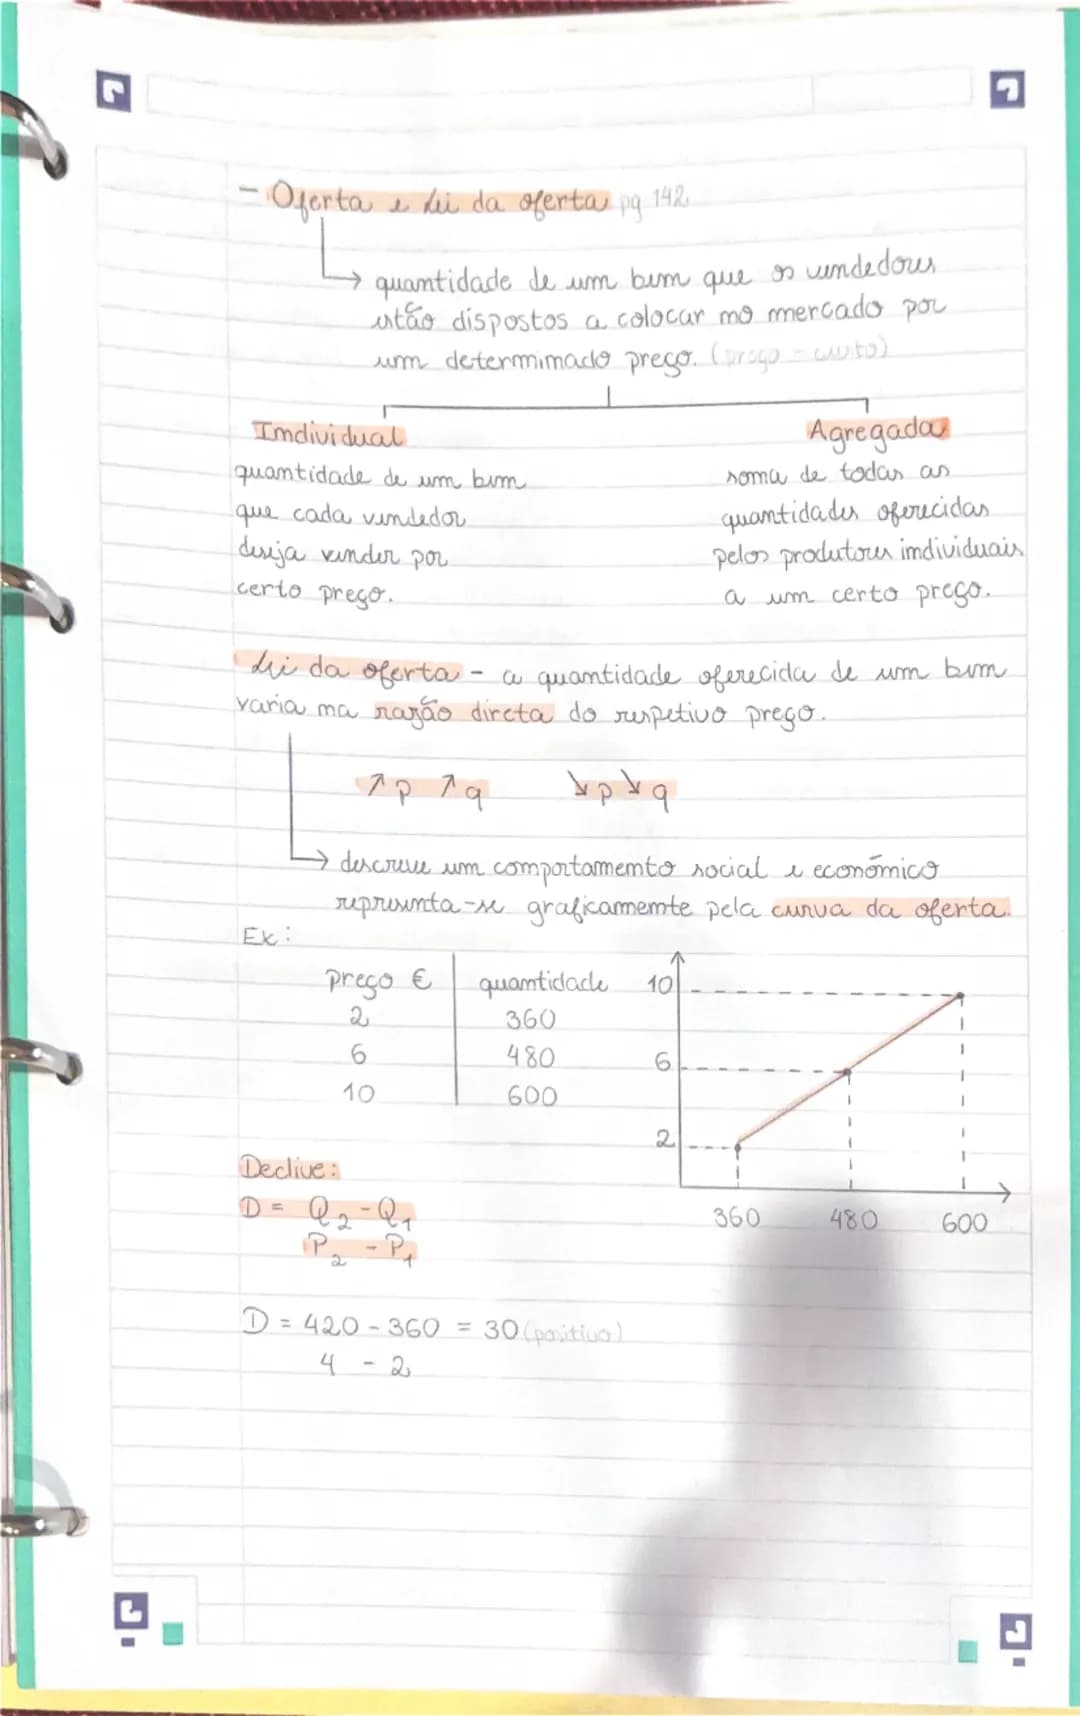 - Oferta e lei da oferta pg 142
quantidade de um bem que os vendedores
estão dispostos a colocar no mercado por
um determinado preço. (preço - custo)
Individual
quantidade de um bem
que cada vendedor
deseja vender por
certo preço.
Agregada
soma de todas as
quantidades oferecidas
pelos produtores individuais
a um certo preço.
Lei da oferta - a quantidade oferecida de um bem
varia na razão direta do respetivo preço.
↗p ↗q ↘p ↘q
descreve um comportamento social e económico
representa-se graficamente pela curva da oferta.
Ex:
preço € quantidade
2 360
6 480
10 600
10
6
2
360 480 600
Declive:
D = Q2 - Q1
P2 - P1
D = 420 - 360 = 30 (positivo)
4 - 2